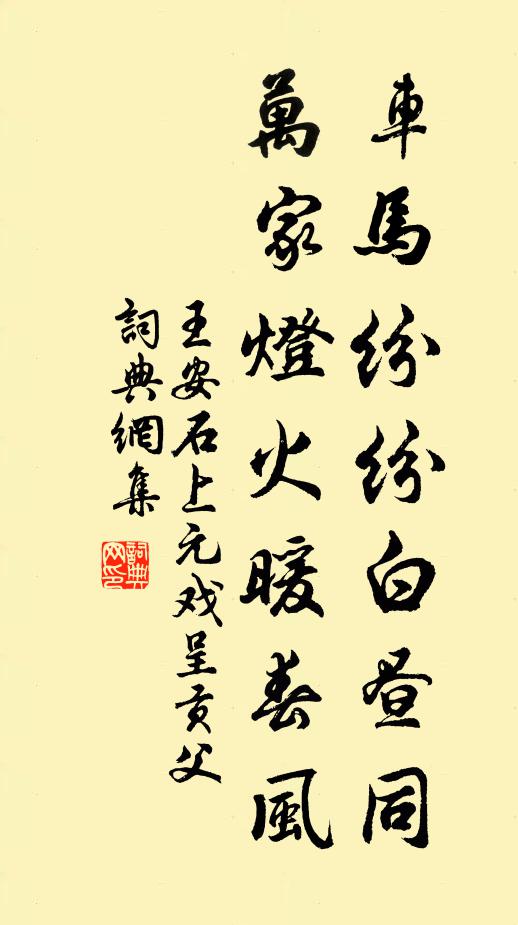 車馬紛紛白晝同
萬家燈火暖春風
王安石上元戏呈贡父
詞典網集
詞典网印